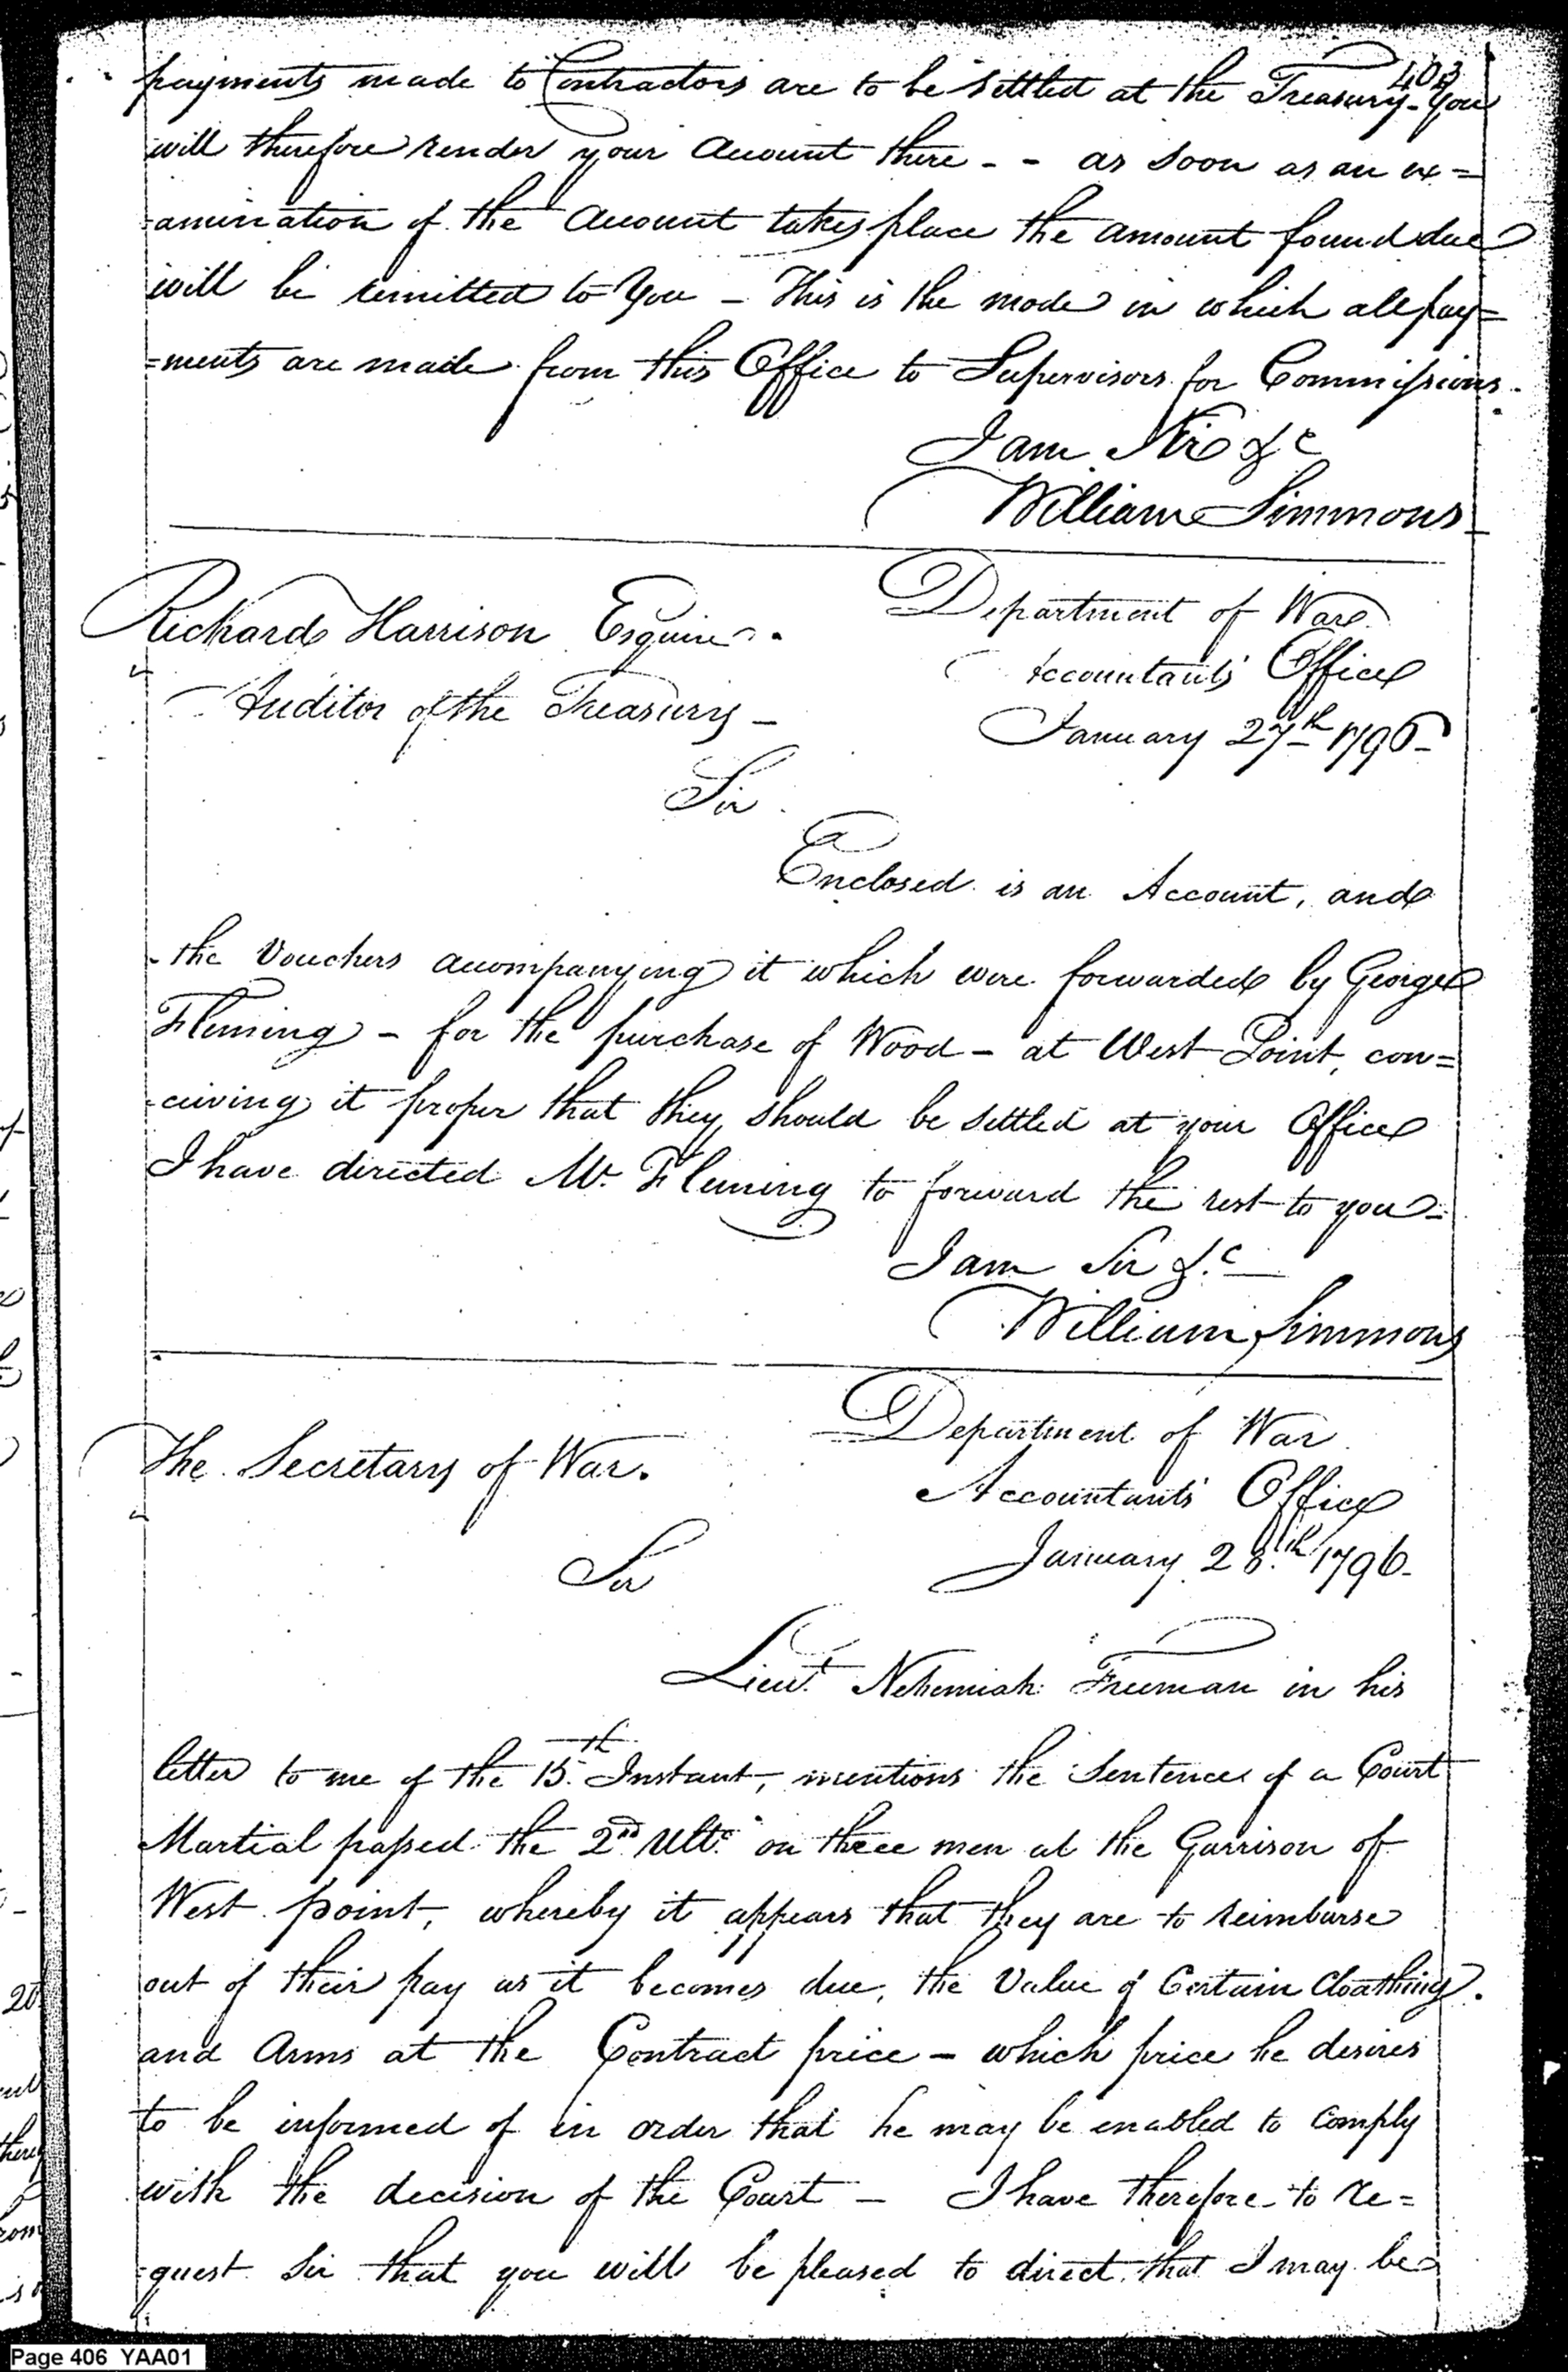 403
payments made to Contractors are to be settled at the Treasury - You
will therefore render your Account there - - as soon as an ex=
=amination of the Account takes place the amount found due
will be remitted to You - This is the mode in which all pay=
=ments are made from this Office to Supervisors for Commissions.
I am Sir &c
William Simmons
Richard Harrison Esquire.
Auditor of the Treasury -
Department of War
Accountants' Office
January 27th 1796-
Sir
Enclosed is an Account, and
the Vouchers accompanying it which were forwarded by George
Fleming - for the purchase of Wood - at West Point, con=
=ceiving it proper that they should be settled at your Office
I have directed Mr. Fleming to forward the rest to you -
I am Sir &.c
William Simmons
The Secretary of War.
Department of War
Accountants' Office
January 28.th 1796.
Sir
Lieut. Nehemiah Freeman in his
letter to me of the 15.th Instant, mentions the Sentence of a Court
Martial passed the 2nd Ulto. on three men at the Garrison of
West point, whereby it appears that they are to reimburse
out of their pay as it becomes due, the Value of Certain Cloathing.
and Arms at the Contract price - which price he desires
to be informed of in order that he may be enabled to comply
with the decision of the Court - I have therefore to re=
=quest Sir that you will be pleased to direct that I may be
Page 406 YAA01